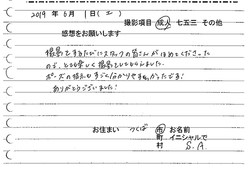 2019 年 6月 1日(土)
撮影項目 成人 七五三 その他
感想をお願いします
撮影をするたびにスタッフの皆さんがほめてくださった
ので、とても楽しく撮影をしてもらいました。
ポーズの指示もすごく分かりやすかったです!
ありがとうございました!
お住まい つくば 市 お名前
町 イニシャルで
村 S.A.